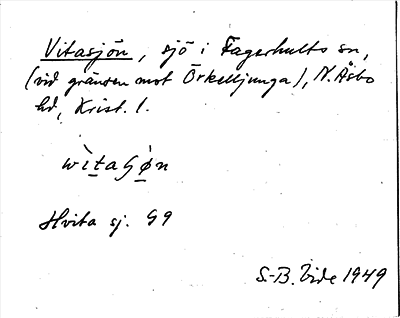 Vitasjön, sjö i Fagerhults sn,
(vid gränsen mot Örkelljunga), N. Åsbo
hd, Krist. l.
wìtaɧø̀n
Hvita sj. G9
S.-B. Vide 1949